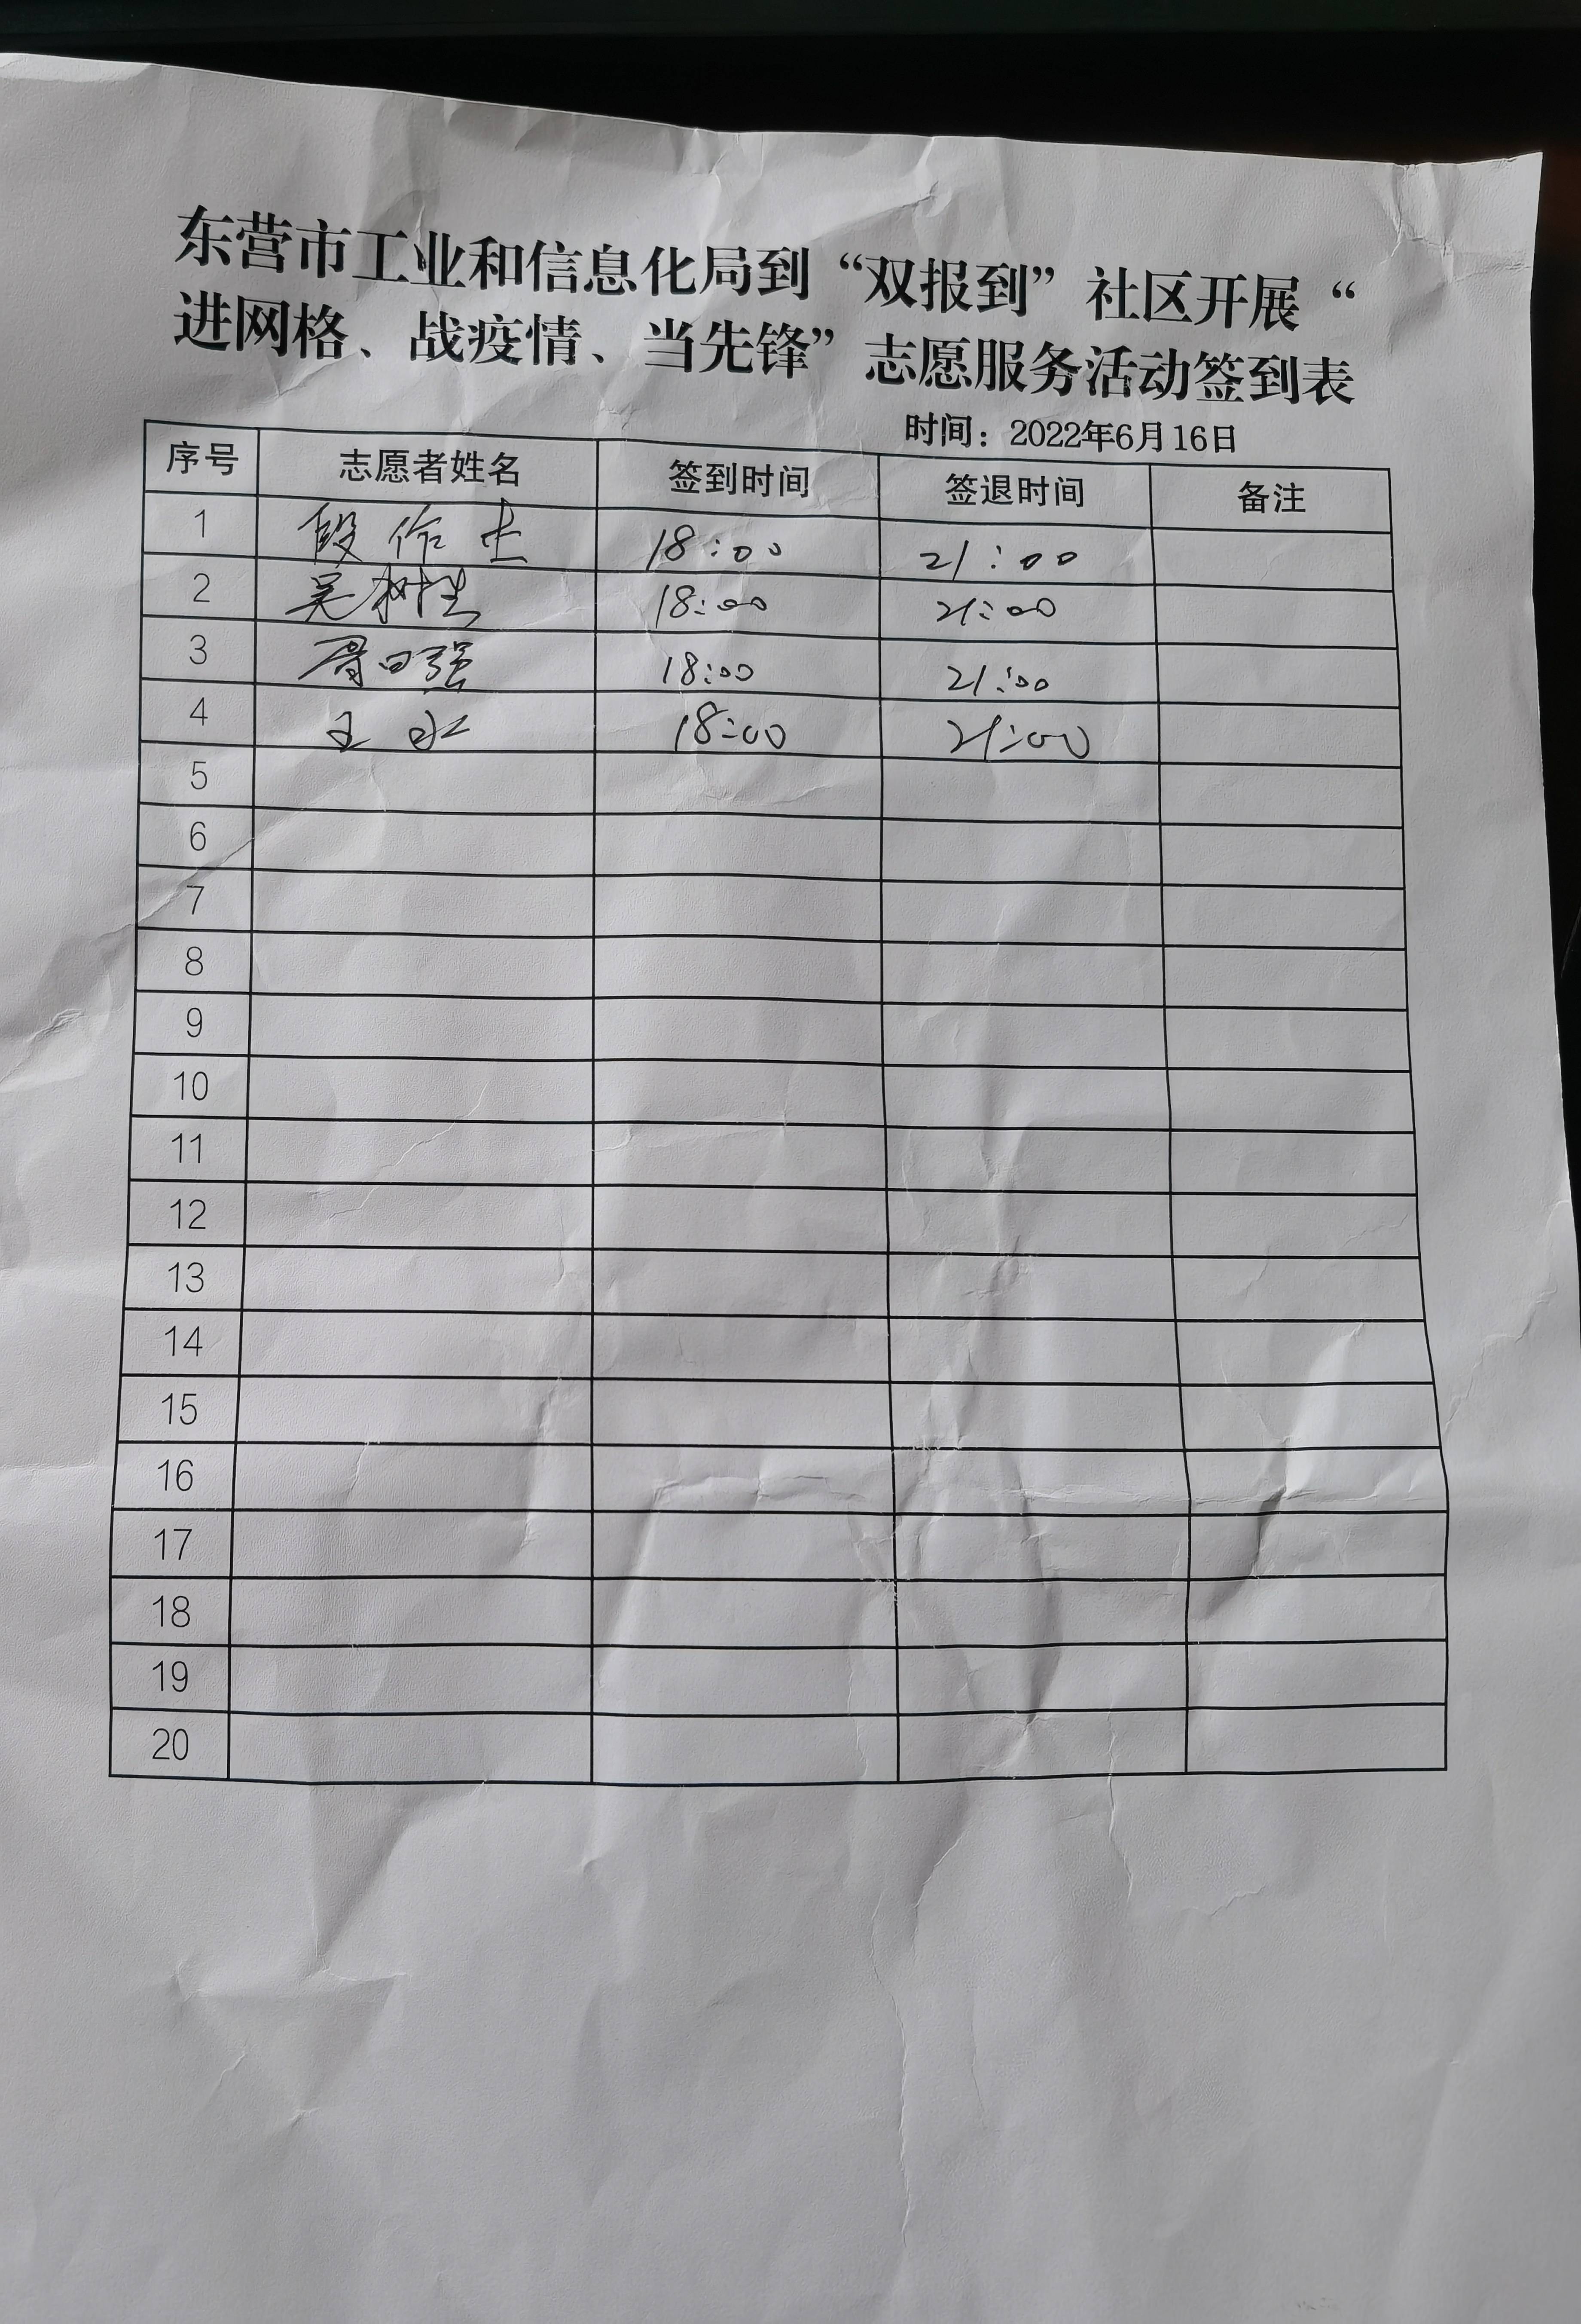 东营市工业和信息化局到“双报到”社区开展“
进网格、战疫情、当先锋”志愿服务活动签到表
时间：2022年6月16日
序号 志愿者姓名 签到时间 签退时间 备注
1 段作 18:00 21:00
2 吴树生 18:00 21:00
3 日强 18:00 21:00
4 王冰 18:00 21:00
5
6
7
8
9
10
11
12
13
14
15
16
17
18
19
20